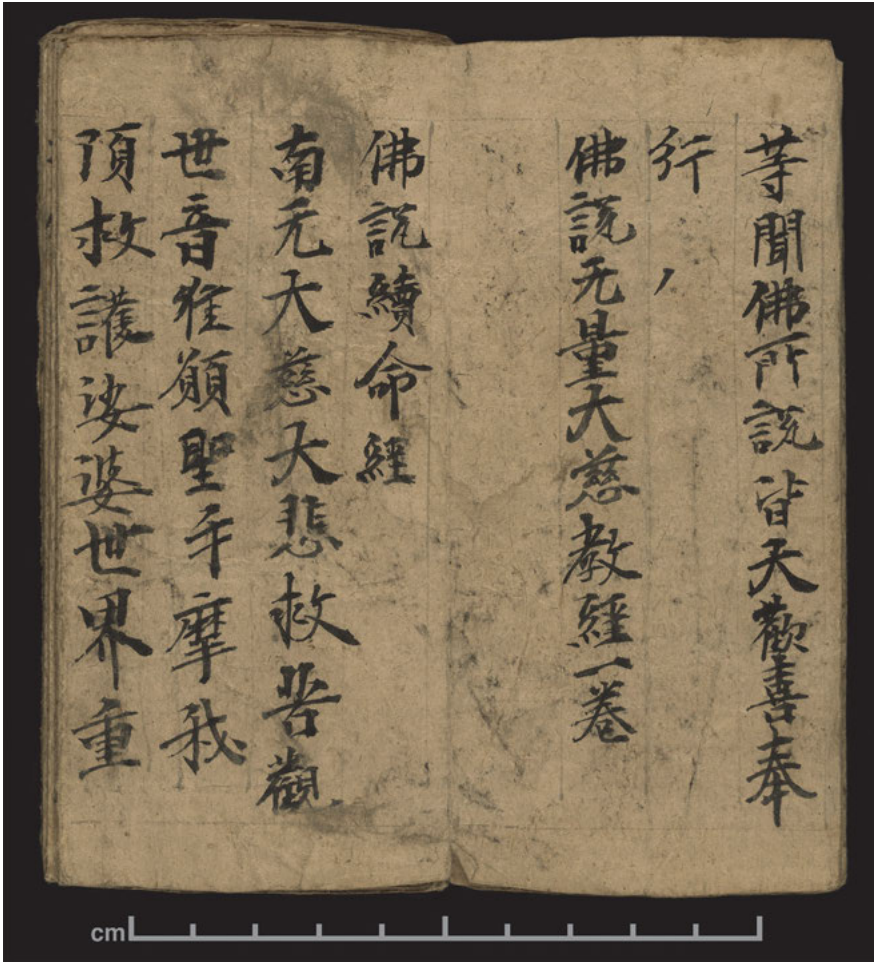 等聞佛所說皆大歡喜奉
行
佛說无量大慈教經一卷
佛說續命經
南无大慈大悲救苦觀
世音唯願聖手摩我
頂救護娑婆世界重
cm